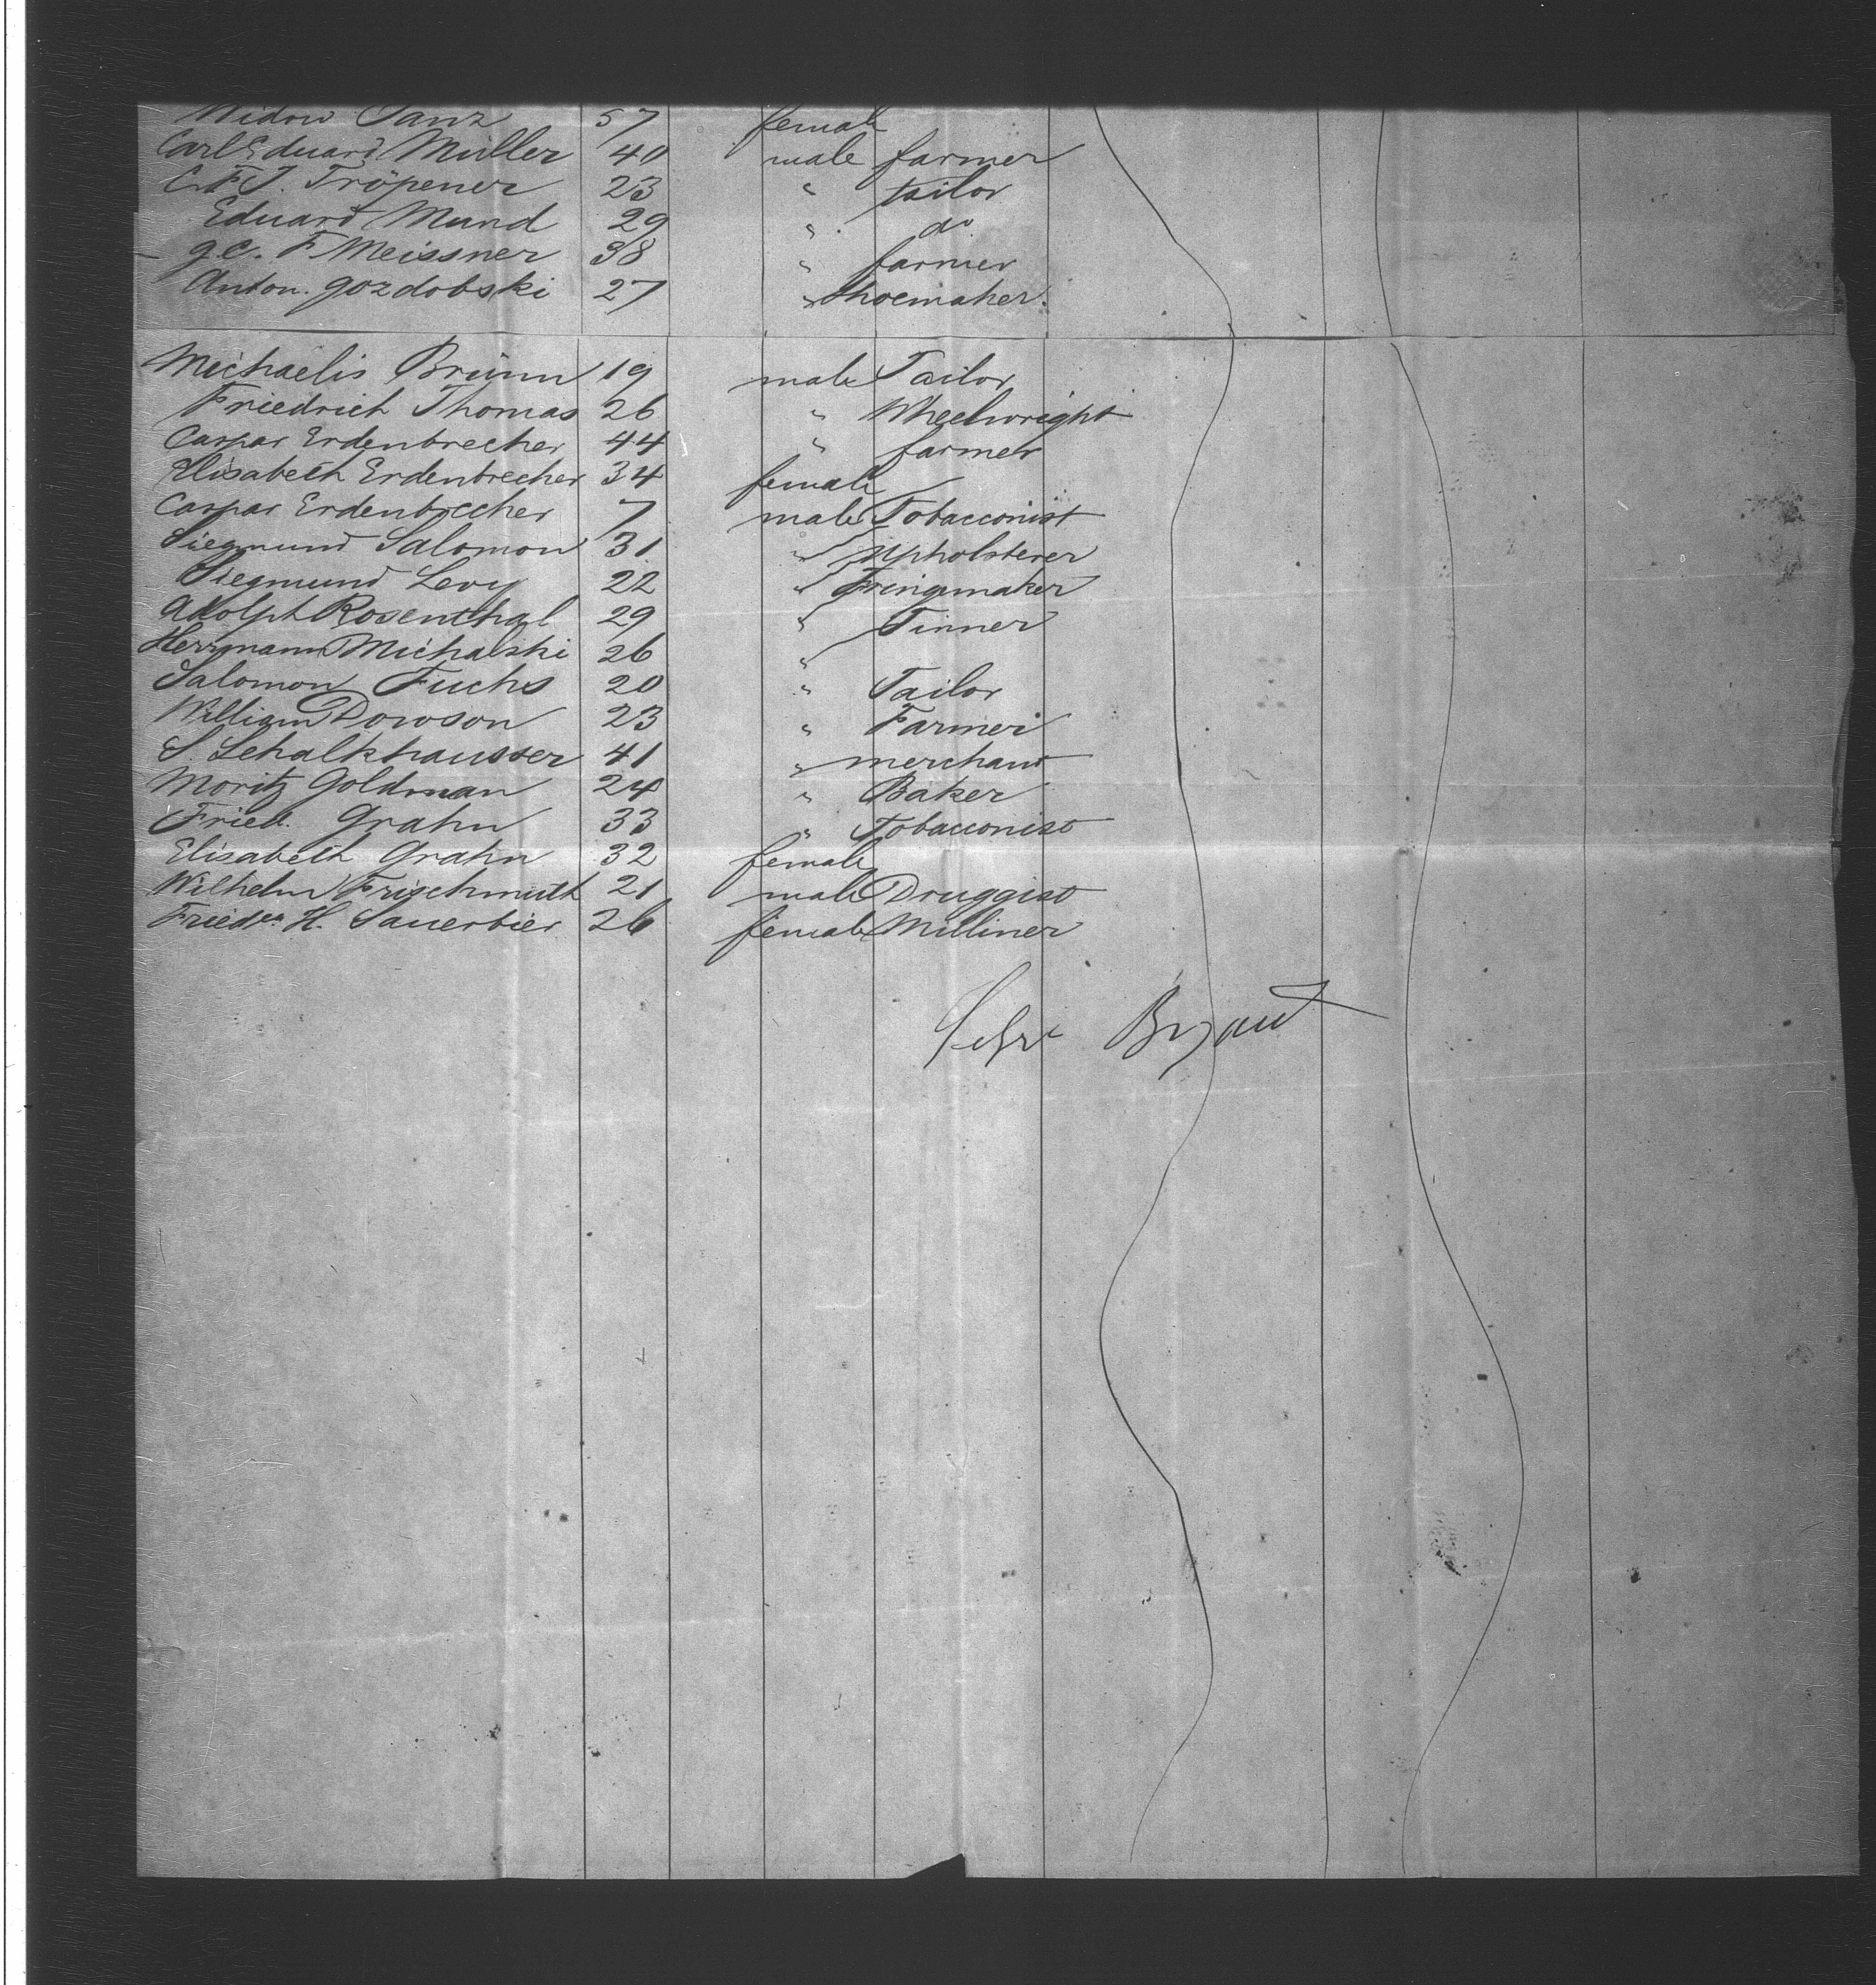 Widow Tanz 57 female
Carl Eduard Müller 40 male farmer
C. F. J. Tröpener 23 " tailor
Eduard Mund 29 " do
G. C. F Meissner 38 " farmer
Anton. Gozdobski 27 " shoemaker.
Michaelis Brünn 19 male Tailor
Friedrich Thomas 26 " Wheelwright
Caspar Erdenbrecher 44 " farmer
Elisabeth Erdenbrecher 34 female
Caspar Erdenbrecher 7 male Tobacconist
Siegmund Salomon 31 " Upholsterer
Siegmund Levy 22 " Fringemaker
Adolph Rosenthal 29 " Tinner
Herrmann Michalski 26 "
Salomon Fuchs 20 " Tailor
William Dowson 23 " Farmer
S. Schalkhausser 41 " merchant
Moritz Goldman 24 " Baker
Fried. Grahn 33 " Tobacconist
Elisabeth Grahn 32 female
Wilhelm Frischmuth 21 male Druggist
Friedr. H. Sauerbier 26 female Milliner
Bryant